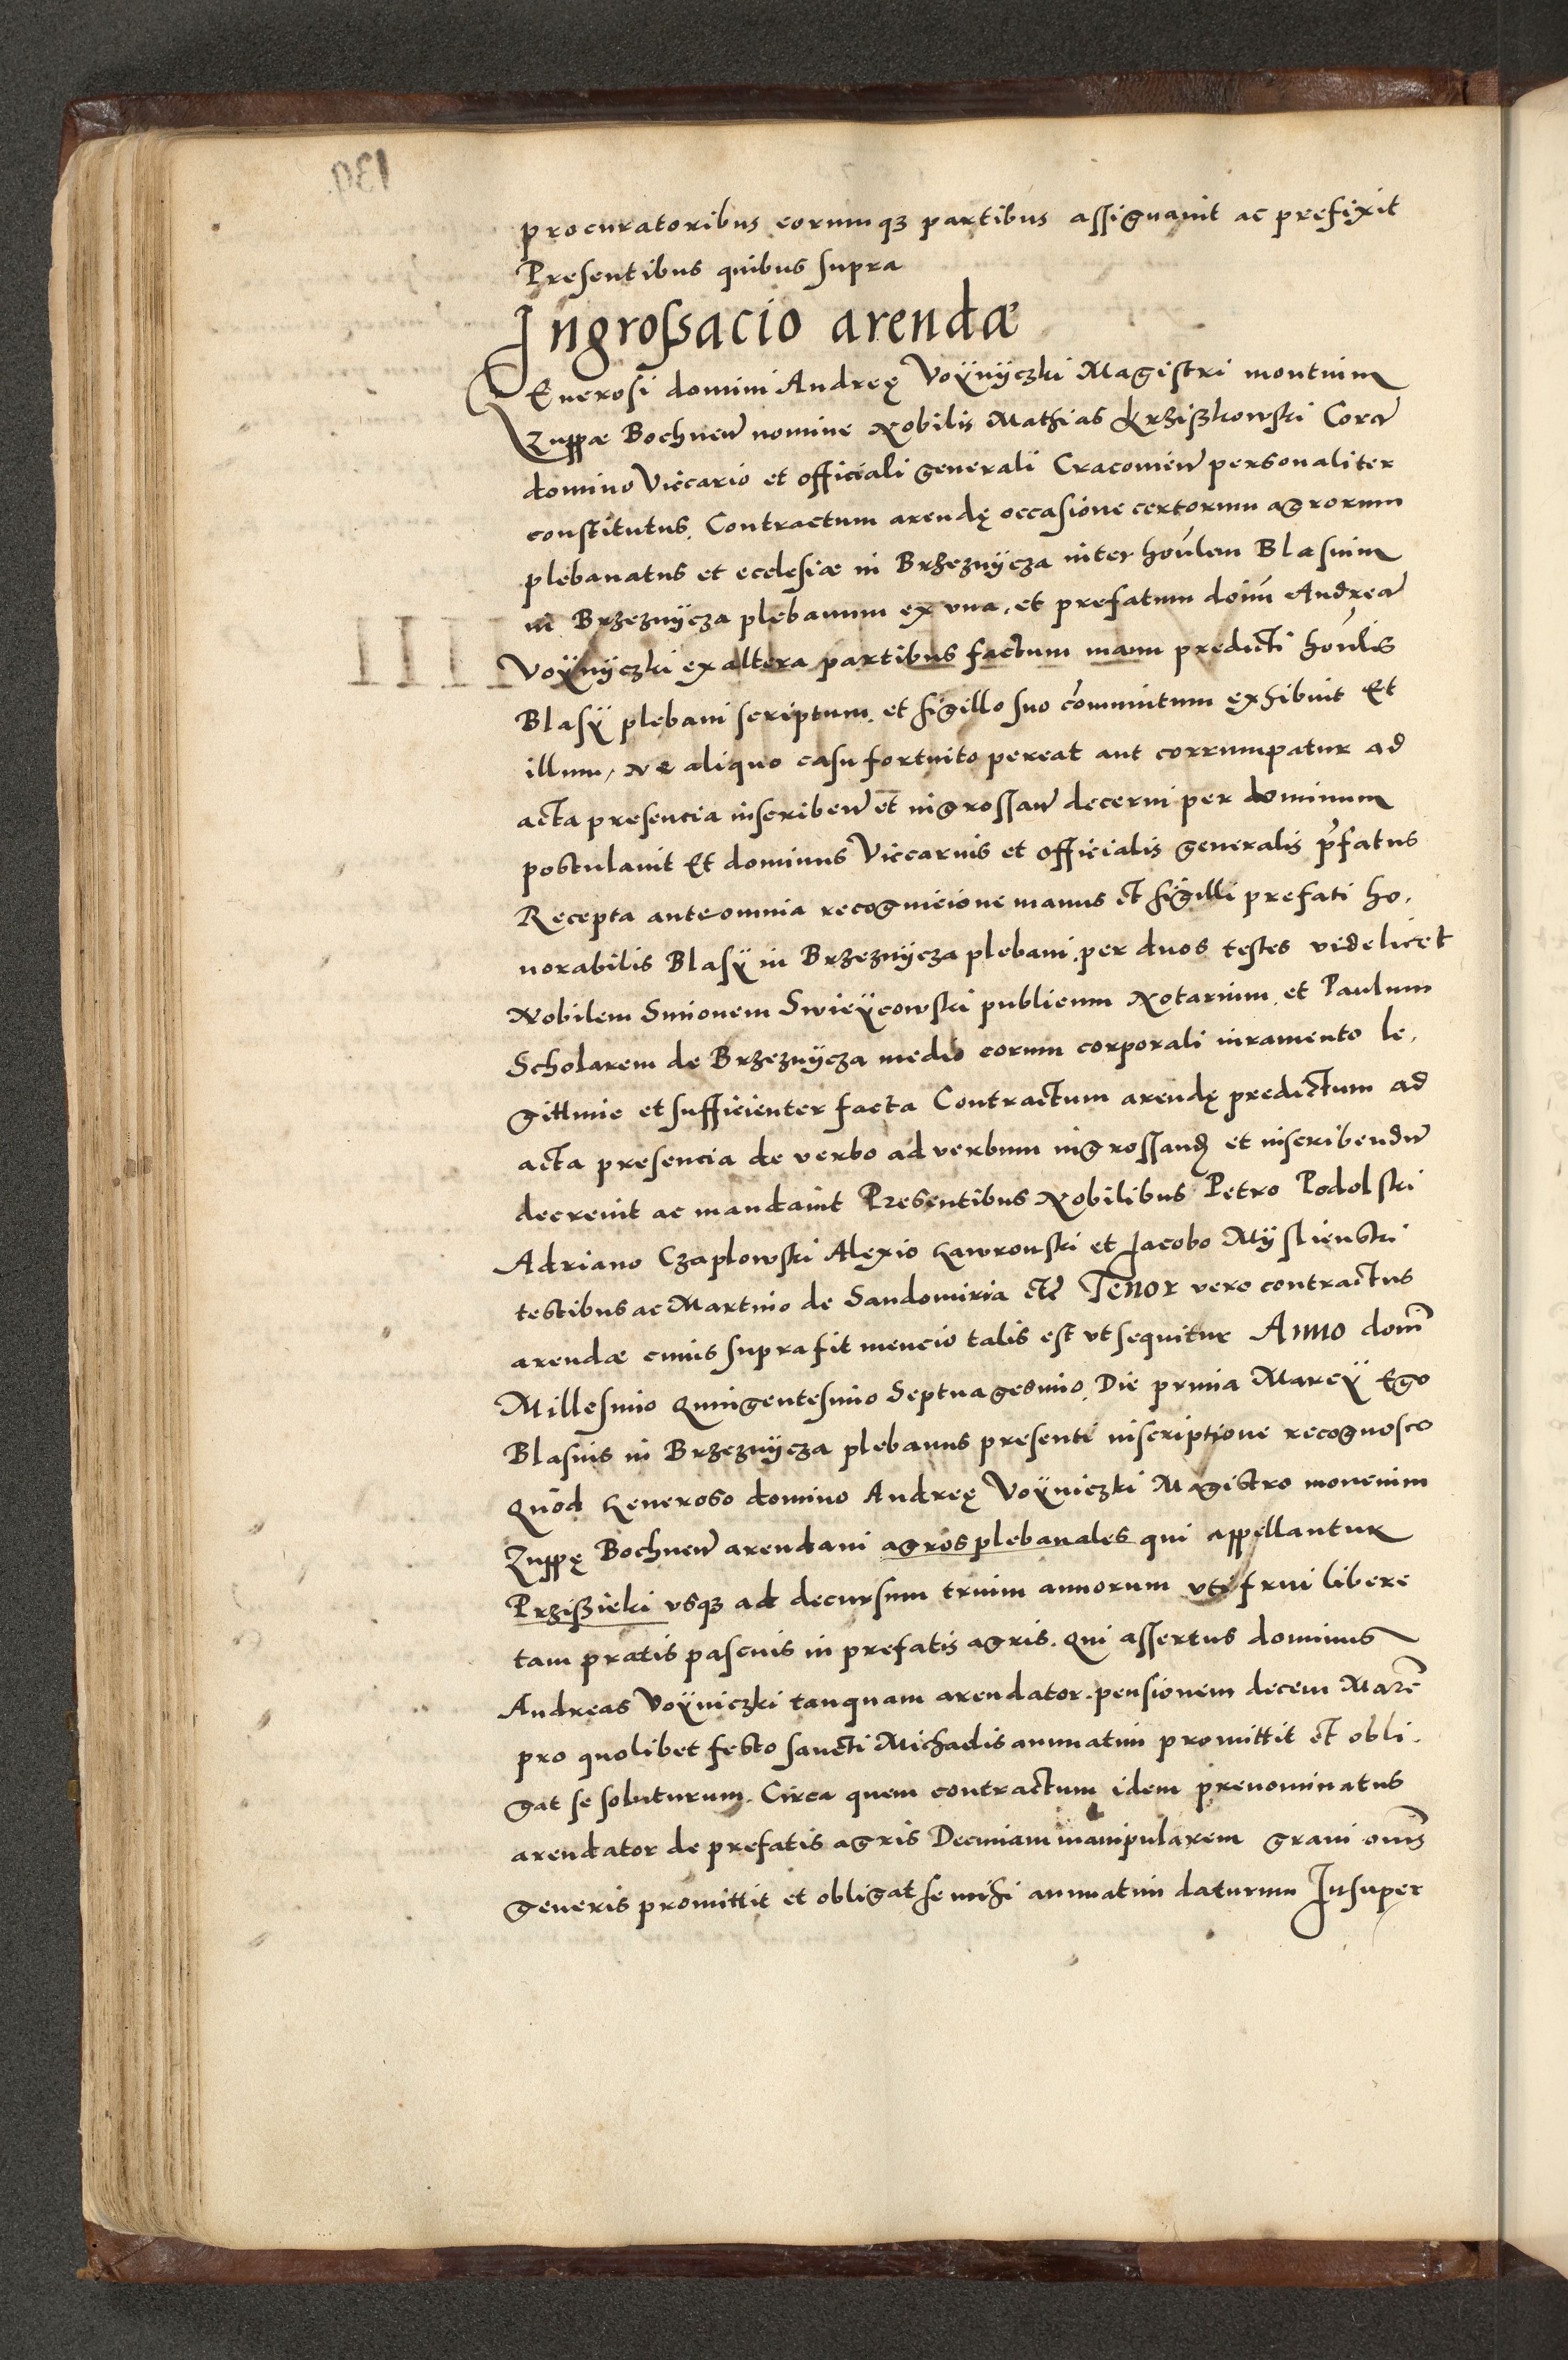 procuratoribus eorumqꝫ partibus assignauit ac prefixit
Presentibus quibus supra
Ingrossacio arendæ
Generosi domini Andreę Voÿnÿczki Magistri montium
Zuppæ Bochneñ nomine Nobilis Mathias Krzißkowski Corã
domino Viccario et officiali generali Cracovieñ personaliter
constitutus. Contractum arendę occasione certorum agrorum
plebanatus et ecclesiæ in Brzeznÿcza inter hoñlem Blasium
in Brzeznÿcza plebanum ex vna, et prefatum doim̃ Andreã
Voÿnÿczki ex altera partibus factum manu predicti hoñlis
Blasÿ plebani scriptum. et sigillo suo cõmunitum exhibuit Et
illum, Ne aliquo casu fortuito pereat aut corrumpatur ad
acta presencia inscribeñ et ingrossañ decerni per dominum
postulauit Et dominus Viccarius et officialis generalis p̃fatus
Recepta ante omnia recognicione manus et sigilli prefati ho.
norabilis Blasÿ in Brzeznÿcza plebani, per duos testes videlicet
Nobilem Simonem Swieÿcowski publicum Notarium, et Paulum
Scholarem de Brzeznÿcza medio eorum corporali iuramento le.
gittime et sufficienter facta Contractum arendę predictum ad
acta presencia de verbo ad verbum ingrossand et inscribendũ
decreuit ac mandauit Presentibus Nobilibus Petro Podolski
Adriano Czaplowski Alexio Gawronski et Jacobo Mÿslienski
testibus ac Martino de Sandomiria etc̃ Tenor vero contractus
arendæ cuius supra fit mencio talis est vt sequitur Anno domĩ
Millesimo Quingentesimo Septuagesimo. Die prima Marcÿ Ego
Blasius in Brzeznÿcza plebanus presenti inscriptione recognosco
Quod Generoso domino Andreę Voÿniczki Magistro moncium
Zuppę Bochneñ arendaui agros plebanales qui appellantur
Przißieki vsqꝫ ad decursum trium annorum vti frui libere
tam pratis pascuis in prefatis agris. Qui assertus dominus
Andreas Voÿniczki tanquam arendator. pensionem decem Marc̃
pro quolibet festo sancti Michaelis annuatim promittit et obli.
gat se soluturum. Circa quem contractum idem prenominatus
arendator de prefatis agris Decimam manipularem grani om̃is
generis promittit et obligat se mihi annuatim daturum Insuper